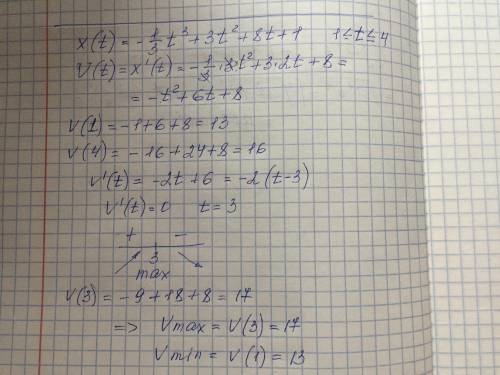 x(t) = -1/3 t³ + 3t² + 8t + 1   1 ≤ t ≤ 4
V(t) = x'(t) = -1/3 · 3 · t² + 3 · 2t + 8 =
= -t² + 6t + 8
V(1) = -1 + 6 + 8 = 13
V(4) = -16 + 24 + 8 = 16
V'(t) = -2t + 6 = -2(t-3)
V'(t) = 0   t = 3
+ -
3
max
V(3) = -9 + 18 + 8 = 17
=> Vmax = V(3) = 17
Vmin = V(1) = 13